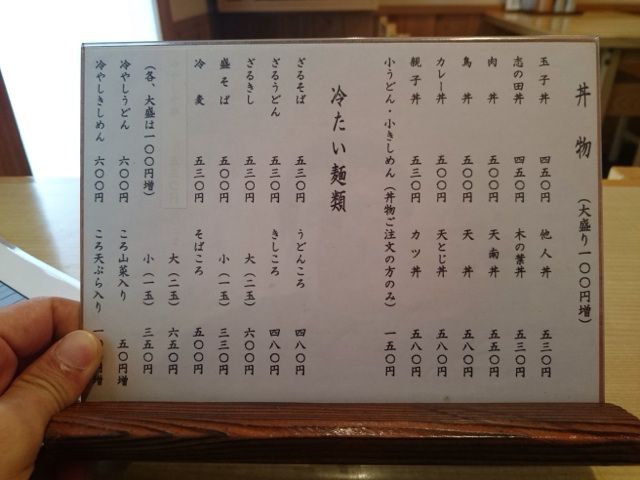 丼物 (大盛り一〇〇円増)
玉子丼 四五〇円 他人丼 五三〇円
志の田丼 四五〇円 木の葉丼 五三〇円
肉丼 五〇〇円 天南丼 五五〇円
鳥丼 五〇〇円 天丼 五八〇円
カレー丼 五〇〇円 天とじ丼 五八〇円
親子丼 五三〇円 カツ丼 五八〇円
小うどん・小きしめん(丼物ご注文の方のみ) 一五〇円
冷たい麺類
ざるそば 五三〇円 うどんころ 四八〇円
ざるうどん 五三〇円 きしころ 四八〇円
ざるきし 五三〇円 大(二玉) 六〇〇円
盛そば 五〇〇円 小(一玉) 三三〇円
冷麦 五三〇円 そばころ 五〇〇円
大(二玉) 六五〇円
(各、大盛は一〇〇円増) 小(一玉) 三五〇円
冷やしうどん 六〇〇円 ころ山菜入り 五〇円増
冷やしきしめん 六〇〇円 ころ天ぷら入り